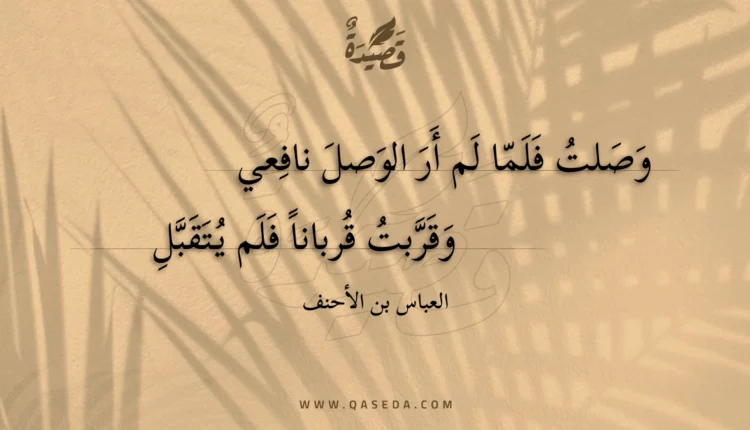 قَصِيْدَةٌ
وَصَلتُ فَلَمّا لَم أَرَ الوَصلَ نافِعي
وَقَرَّبتُ قُرباناً فَلَم يُتَقَبَّلِ
العباس بن الأحنف
WWW.QASEDA.COM